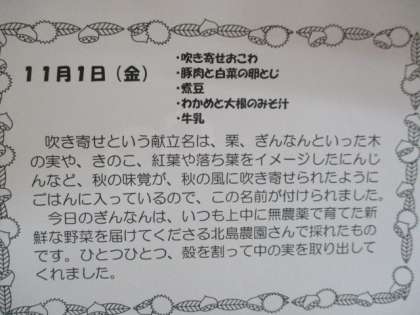 11月1日（金）
・吹き寄せおこわ
・豚肉と白菜の卵とじ
・煮豆
・わかめと大根のみそ汁
・牛乳
吹き寄せという献立名は、栗、ぎんなんといった木
の実や、きのこ、紅葉や落ち葉をイメージしたにんじ
んなど、秋の味覚が、秋の風に吹き寄せられたように
ごはんに入っているので、この名前が付けられました。
今日のぎんなんは、いつも上中に無農薬で育てた新
鮮な野菜を届けてくださる北島農園さんで採れたもの
です。ひとつひとつ、殻を割って中の実を取り出して
くれました。